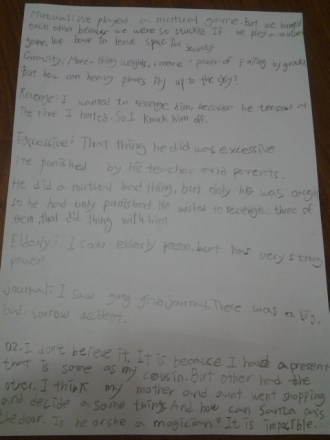 Mutual: We played a mutual game. But we bumped
each other because we were so
game, we have to leave space for security
Curiosity: More thing weights, more power of falling by gravity
But how can heavy planes fly up to the sky?
Revenge: I wanted to revenge him, because he teased
the time. I hated. So I knock him off.
Excessive: That thing he did was excessive
He punished by his teacher and parents.
He did a mutual bad thing, but only he was
so he had only punished. He wished to revenge three of
them, that did thing with him
Elderly: I saw elderly but has very strong
power!
Journal: I saw journal. There was a big,
bad, sorrow accident.
Q2. I don't believe it. It is because I had a present
that is same as my cousin. But other had the
other. I think my mother and aunt went shopping
and decide a same thing. And how can Santa pass
the door. Is he or she a magician? It is